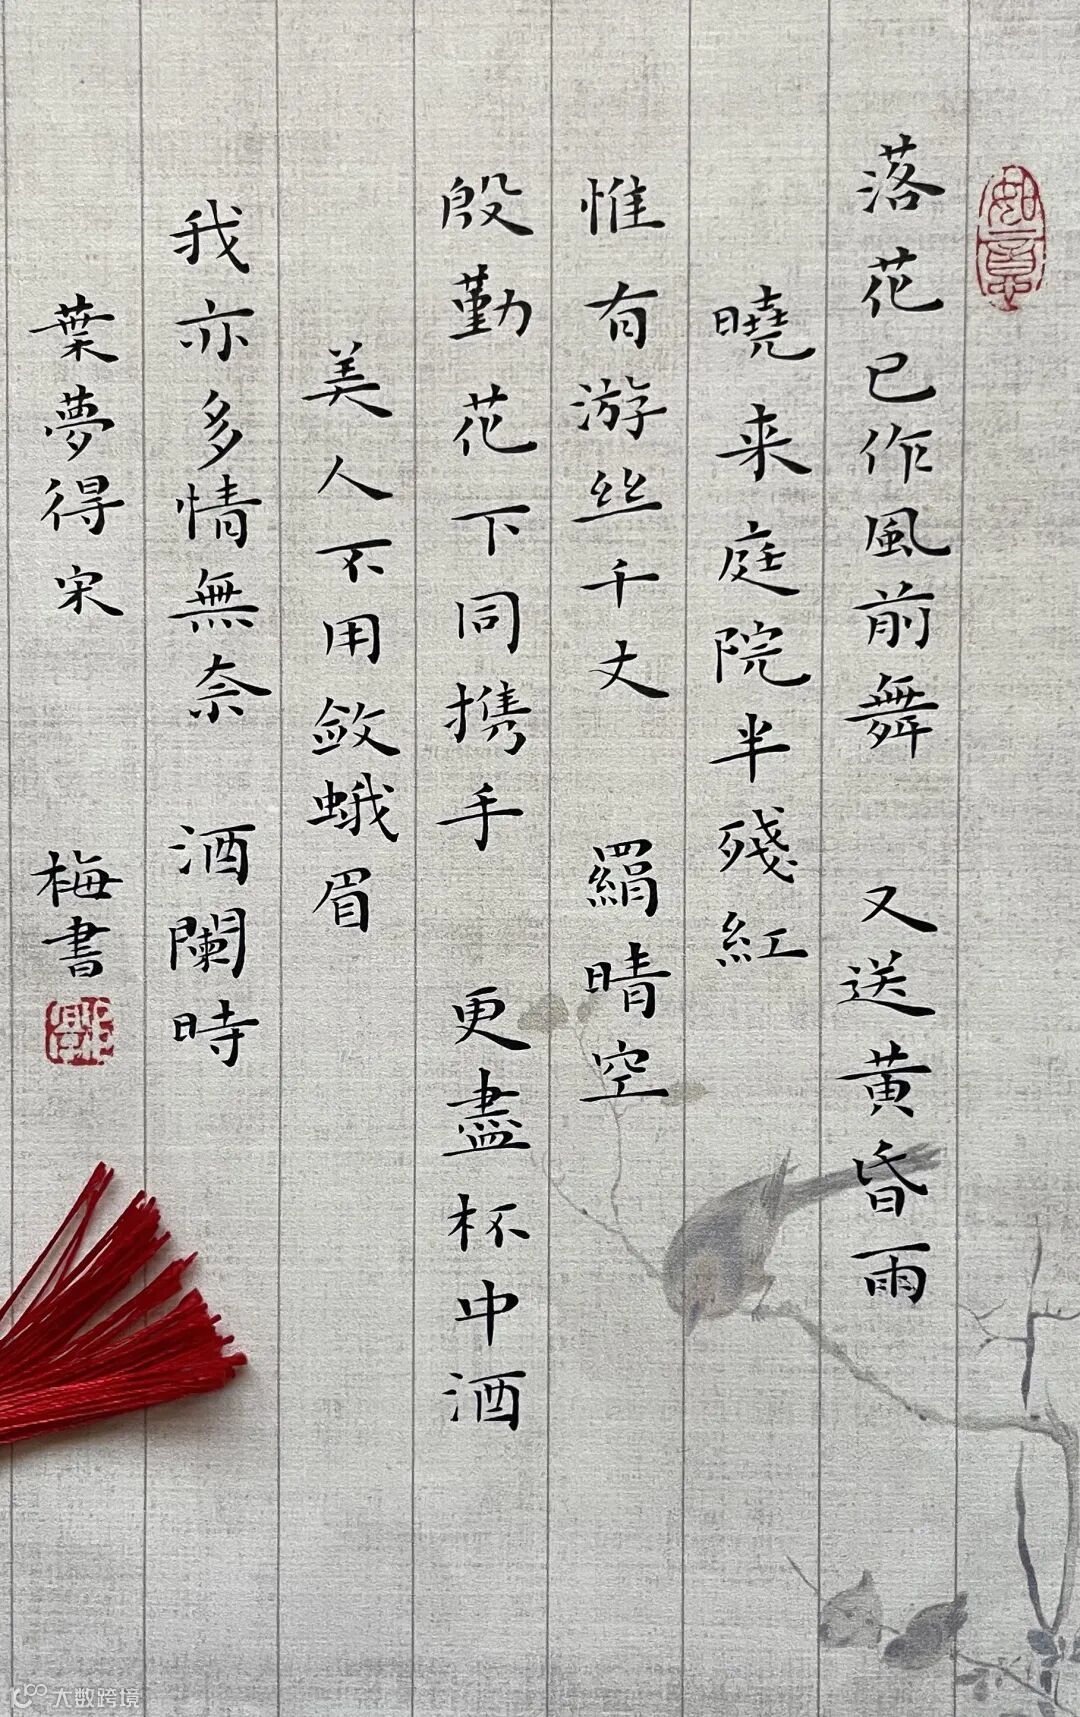 如意
落花已作風前舞 又送黄昏雨
曉来庭院半殘紅
惟有游丝千丈 羂晴空
殷勤花下同携手 更盡杯中酒
美人不用敛蛾眉
我亦多情無奈 酒闌時
葉夢得宋 梅書
大数跨境